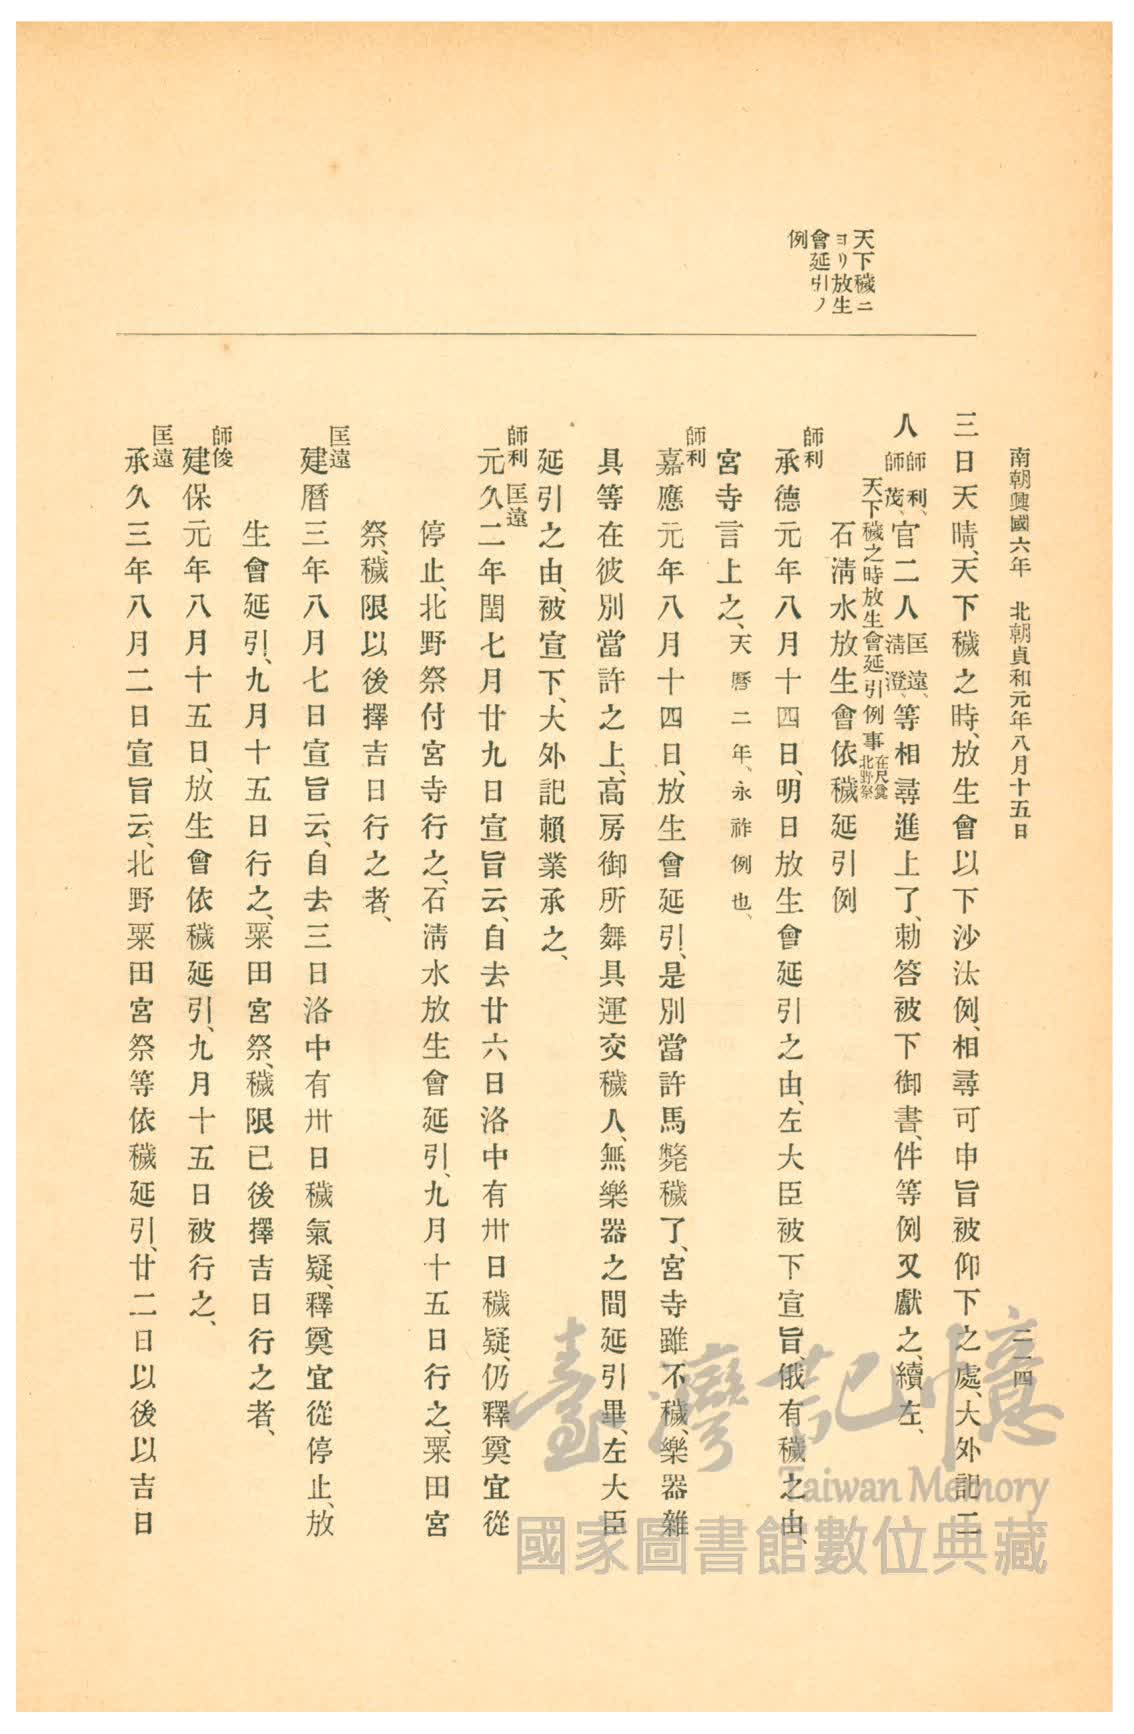 南朝興國六年　北朝貞和元年八月十五日　二一四
天下穢ニ
ヨリ放生
會延引ノ
例
三日天晴、天下穢之時、放生會以下沙汰例、相尋可申旨被仰下之處、大外記二
人師利、師茂、官二人匡遠、淸澄、等相尋進上了、勅答被下御書、件等例又獻之、續左、
天下穢之時放生會延引例事
石淸水放生會依穢延引例
師利
承德元年八月十四日、明日放生會延引之由、左大臣被下宣旨、俄有穢之由、
宮寺言上之、天曆二年、永祚例也、
師利
嘉應元年八月十四日、放生會延引、是別當許馬斃穢了、宮寺雖不穢、樂器雜
具等在彼別當許之上、高房御所舞具運交穢人、無樂器之間延引畢、左大臣
延引之由、被宣下、大外記賴業承之、
師利　匡遠
元久二年閏七月廿九日宣旨云、自去廿六日洛中有卅日穢疑、仍釋奠宜從
停止、北野祭付宮寺行之、石淸水放生會延引、九月十五日行之、粟田宮
祭、穢限以後擇吉日行之者、
匡遠
建曆三年八月七日宣旨云、自去三日洛中有卅日穢氣疑、釋奠宜從停止、放
生會延引、九月十五日行之、粟田宮祭、穢限已後擇吉日行之者、
師俊
建保元年八月十五日、放生會依穢延引、九月十五日被行之、
匡遠
承久三年八月二日宣旨云、北野粟田宮祭等依穢延引、廿二日以後以吉日
臺灣記憶
Taiwan Memory
國家圖書館數位典藏